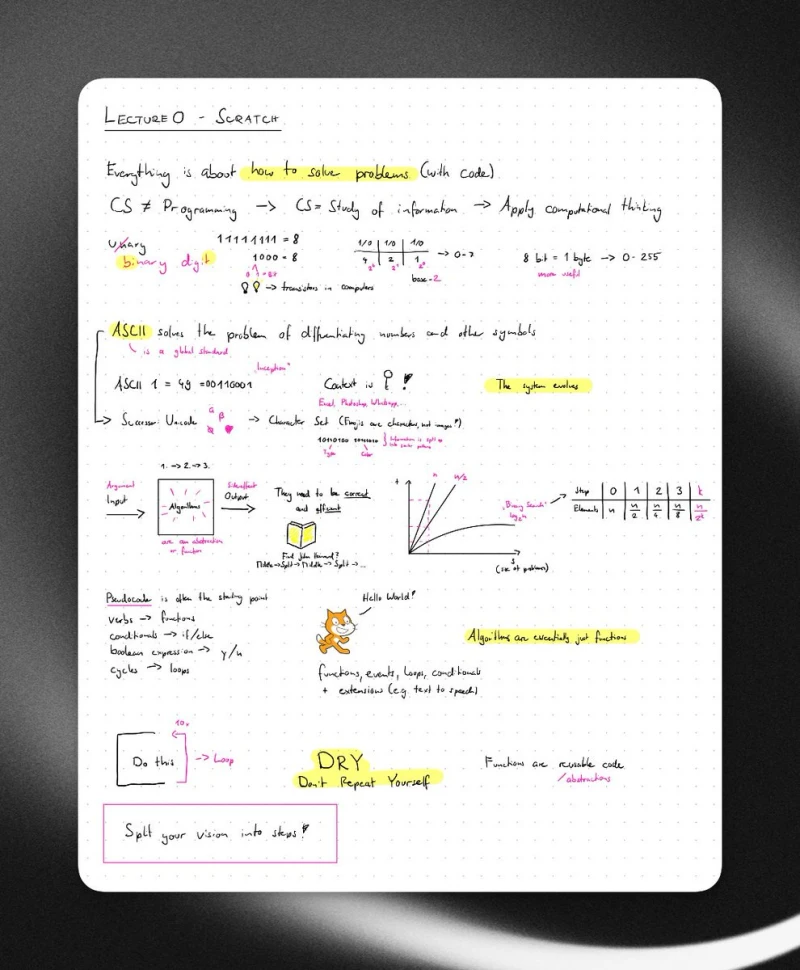 LECTURE 0 - SCRATCH
Everything is about how to solve problems (with code)
CS ≠ Programming -> CS = Study of information -> Apply computational thinking
Unary
11111111 = 8
binary digit
1000 = 8
-> transistors in computers
1/0 | 1/0 | 1/0
4 | 2 | 1
2² 2¹ 2⁰
-> 0-7
base-2
8 bit = 1 byte -> 0-255
more useful
ASCII solves the problem of differentiating numbers and other symbols
is a global standard
"Inception"
ASCII 1 = 49 = 00110001
Context is !
Excel, Photoshop, Whatsapp...
The system evolves
Successor: Unicode
-> Character Set (Emojis are characters, not images!)
Information is split up
Color
1. -> 2. -> 3.
Argument
Input
Algorithms
are an abstraction
or function
Side effect
Output
They need to be correct
and efficient
Find John Harvard?
Middle -> Split -> Middle -> Split -> ...
t
n
n/2
"Binary Search"
log₂n
s
(size of problems)
Step | 0 | 1 | 2 | 3 | k
Elements | n | n/2 | n/4 | n/8 | n/2ᵏ
Pseudocode is often the starting point
verbs -> functions
conditionals -> if/else
boolean expression -> y/n
cycles -> loops
Hello World!
functions, events, loops, conditionals
+ extensions (e.g. text to speech)
Algorithms are essentially just functions
10x
Do this
-> Loop
DRY
Don't Repeat Yourself
Functions are reusable code
abstractions
Split your vision into steps!